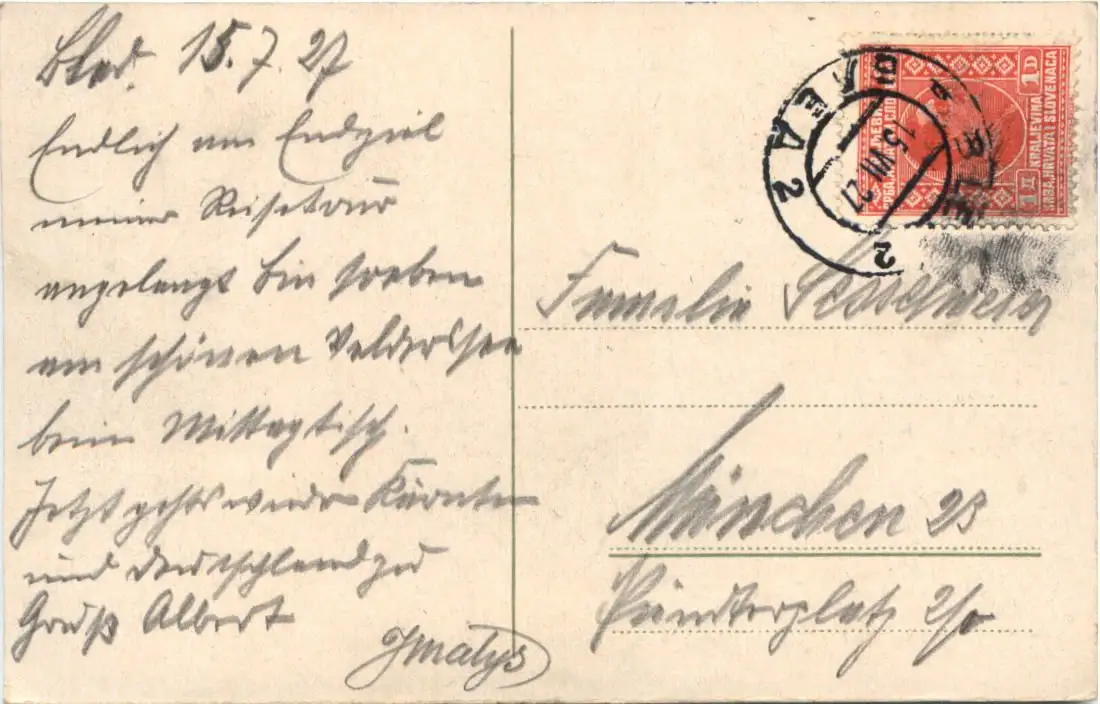 Bled. 15.7.27
Endlich am Endziel
meiner Reisetour
angelangt bin soeben
am schönen Veldessee
beim Mittagtisch.
Jetzt gehts wieder Kärnten
und Deutschland zu
Gruß Albert
Familie
München 23
2/0
BLED 2
15 VII 27
2
1D
KRALJEVINA
SRBA, HRVATA I SLOVENACA